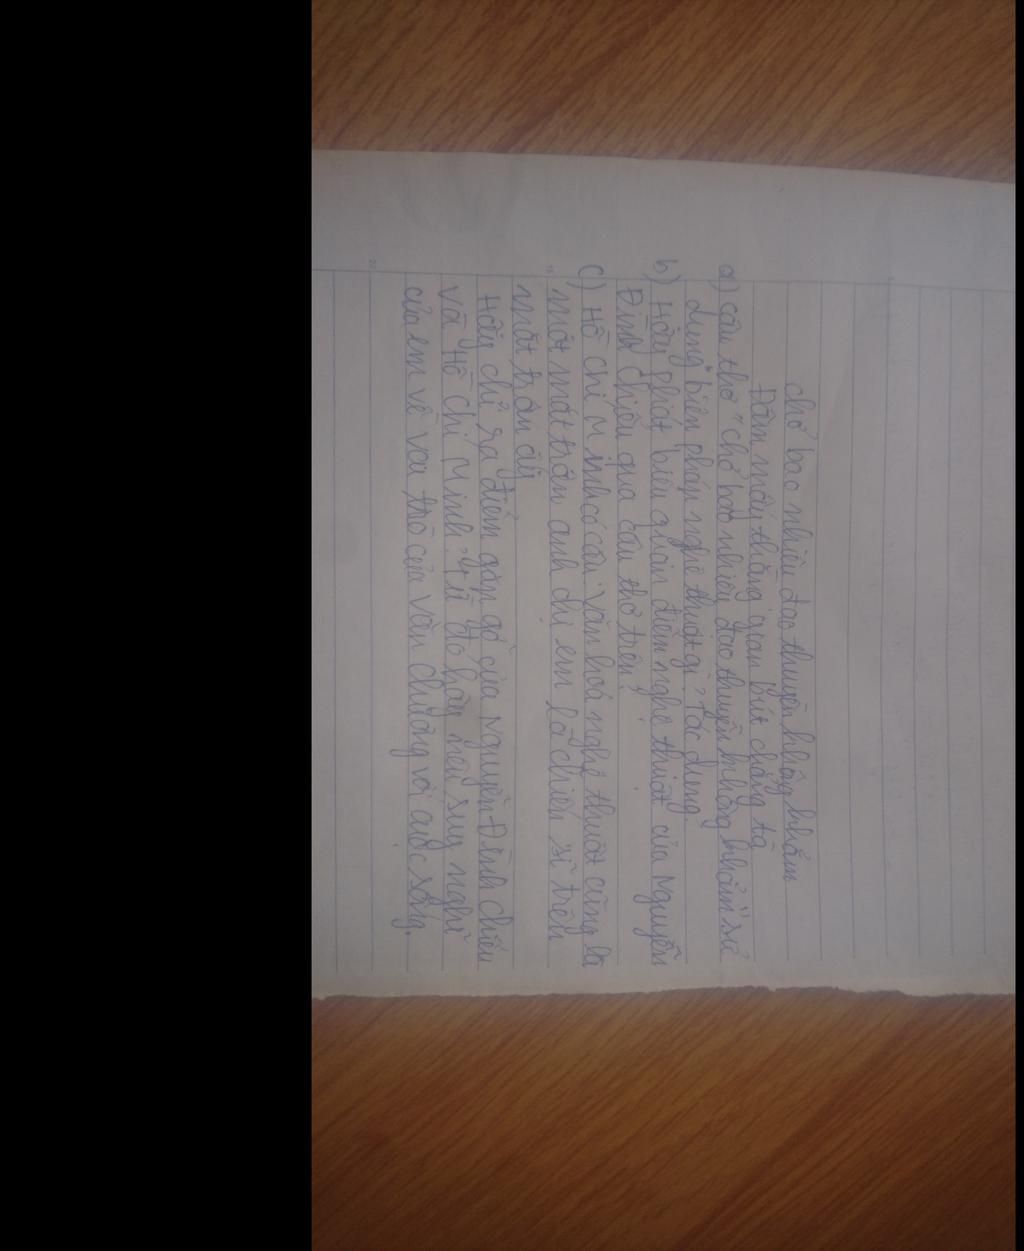 chở bao nhiêu đạo thuyền không khẳm
Đâm mấy thằng gian bút chẳng tà
a) câu thơ "chở bao nhiêu đạo thuyền không khẳm" sử
dụng biện pháp nghệ thuật gì? Tác dụng.
b) Hãy phát biểu quan điểm nghệ thuật của Nguyễn
Đình Chiểu qua câu thơ trên?
c) Hồ Chí Minh có câu: văn hoá nghệ thuật cũng là
một mặt trận anh chị em là chiến sĩ trên
mặt trận ấy
Hãy chỉ ra điểm gặp gỡ của Nguyễn Đình Chiểu
và Hồ Chí Minh? Từ đó hãy nêu suy nghĩ
của em về vai trò của văn chương với cuộc sống.